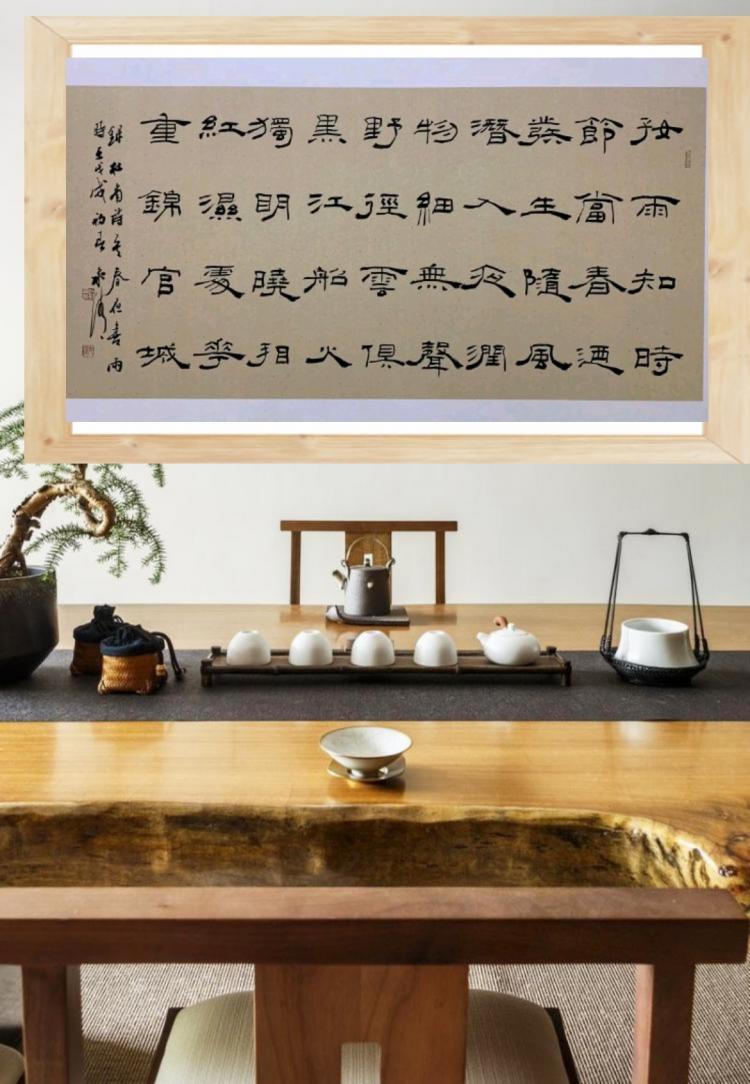 好雨知時
節當春迺
發生隨風
潛入夜潤
物細無聲
野徑雲俱
黑江船火
獨明曉看
紅濕處華
重錦官城
錄杜甫詩春夜喜雨
時歲初春